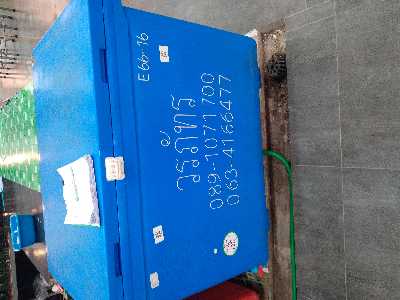 E66-16
วรภัทร
089-1071700
063-4166477